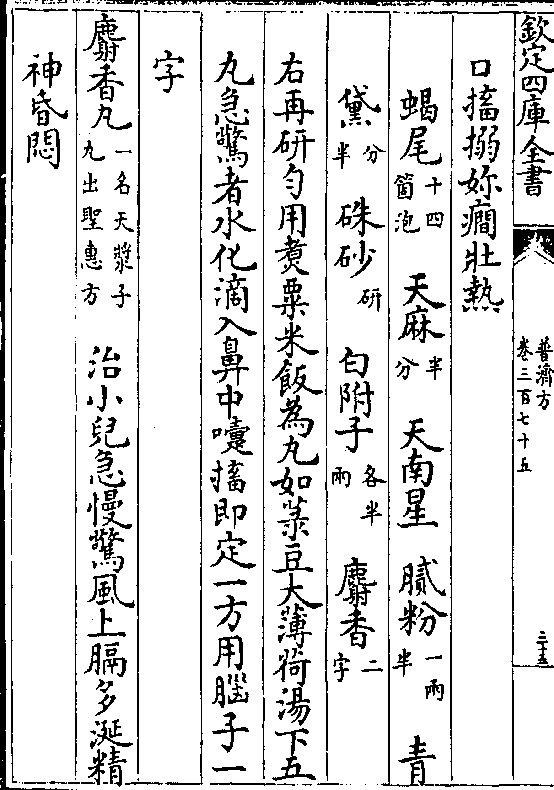 欽定四庫全書
普濟方
卷三百七十五
二十五
口搐搦妳癇壯熱
蝎尾十四箇泡 天麻半分 天南星 膩粉一兩半 青
黛分半 硃砂研 白附子各半兩 麝香二字
右再研勻用煑粟米飯為丸如菉豆大薄荷湯下五
丸急驚者水化滴入鼻中嚏搐即定一方用腦子一
字
麝香丸一名天漿子丸出聖惠方 治小兒急慢驚風上膈多涎精
神昏悶